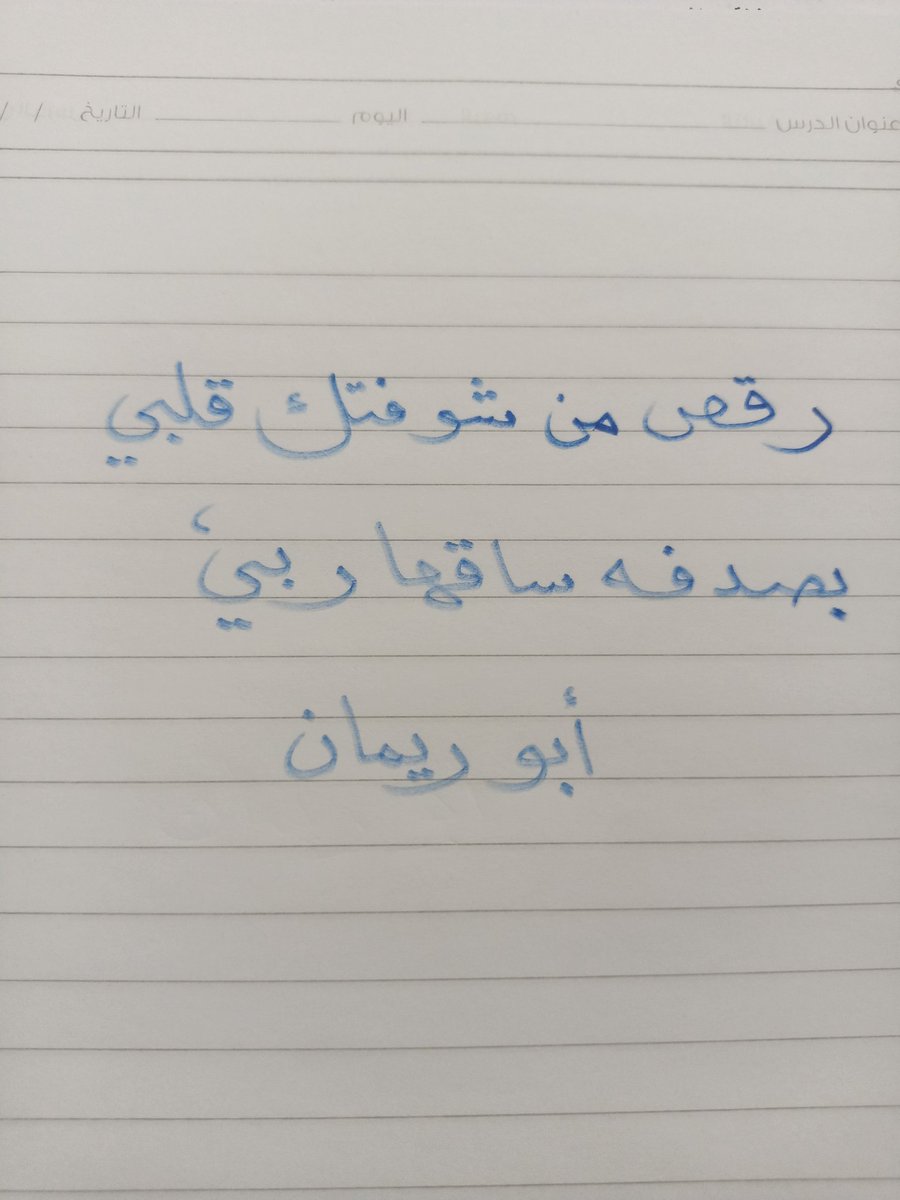 عنوان الدرس اليوم التاريخ / /
رقص من شوفتك قلبي
بصدفه ساقها ربي،
أبو ريمان